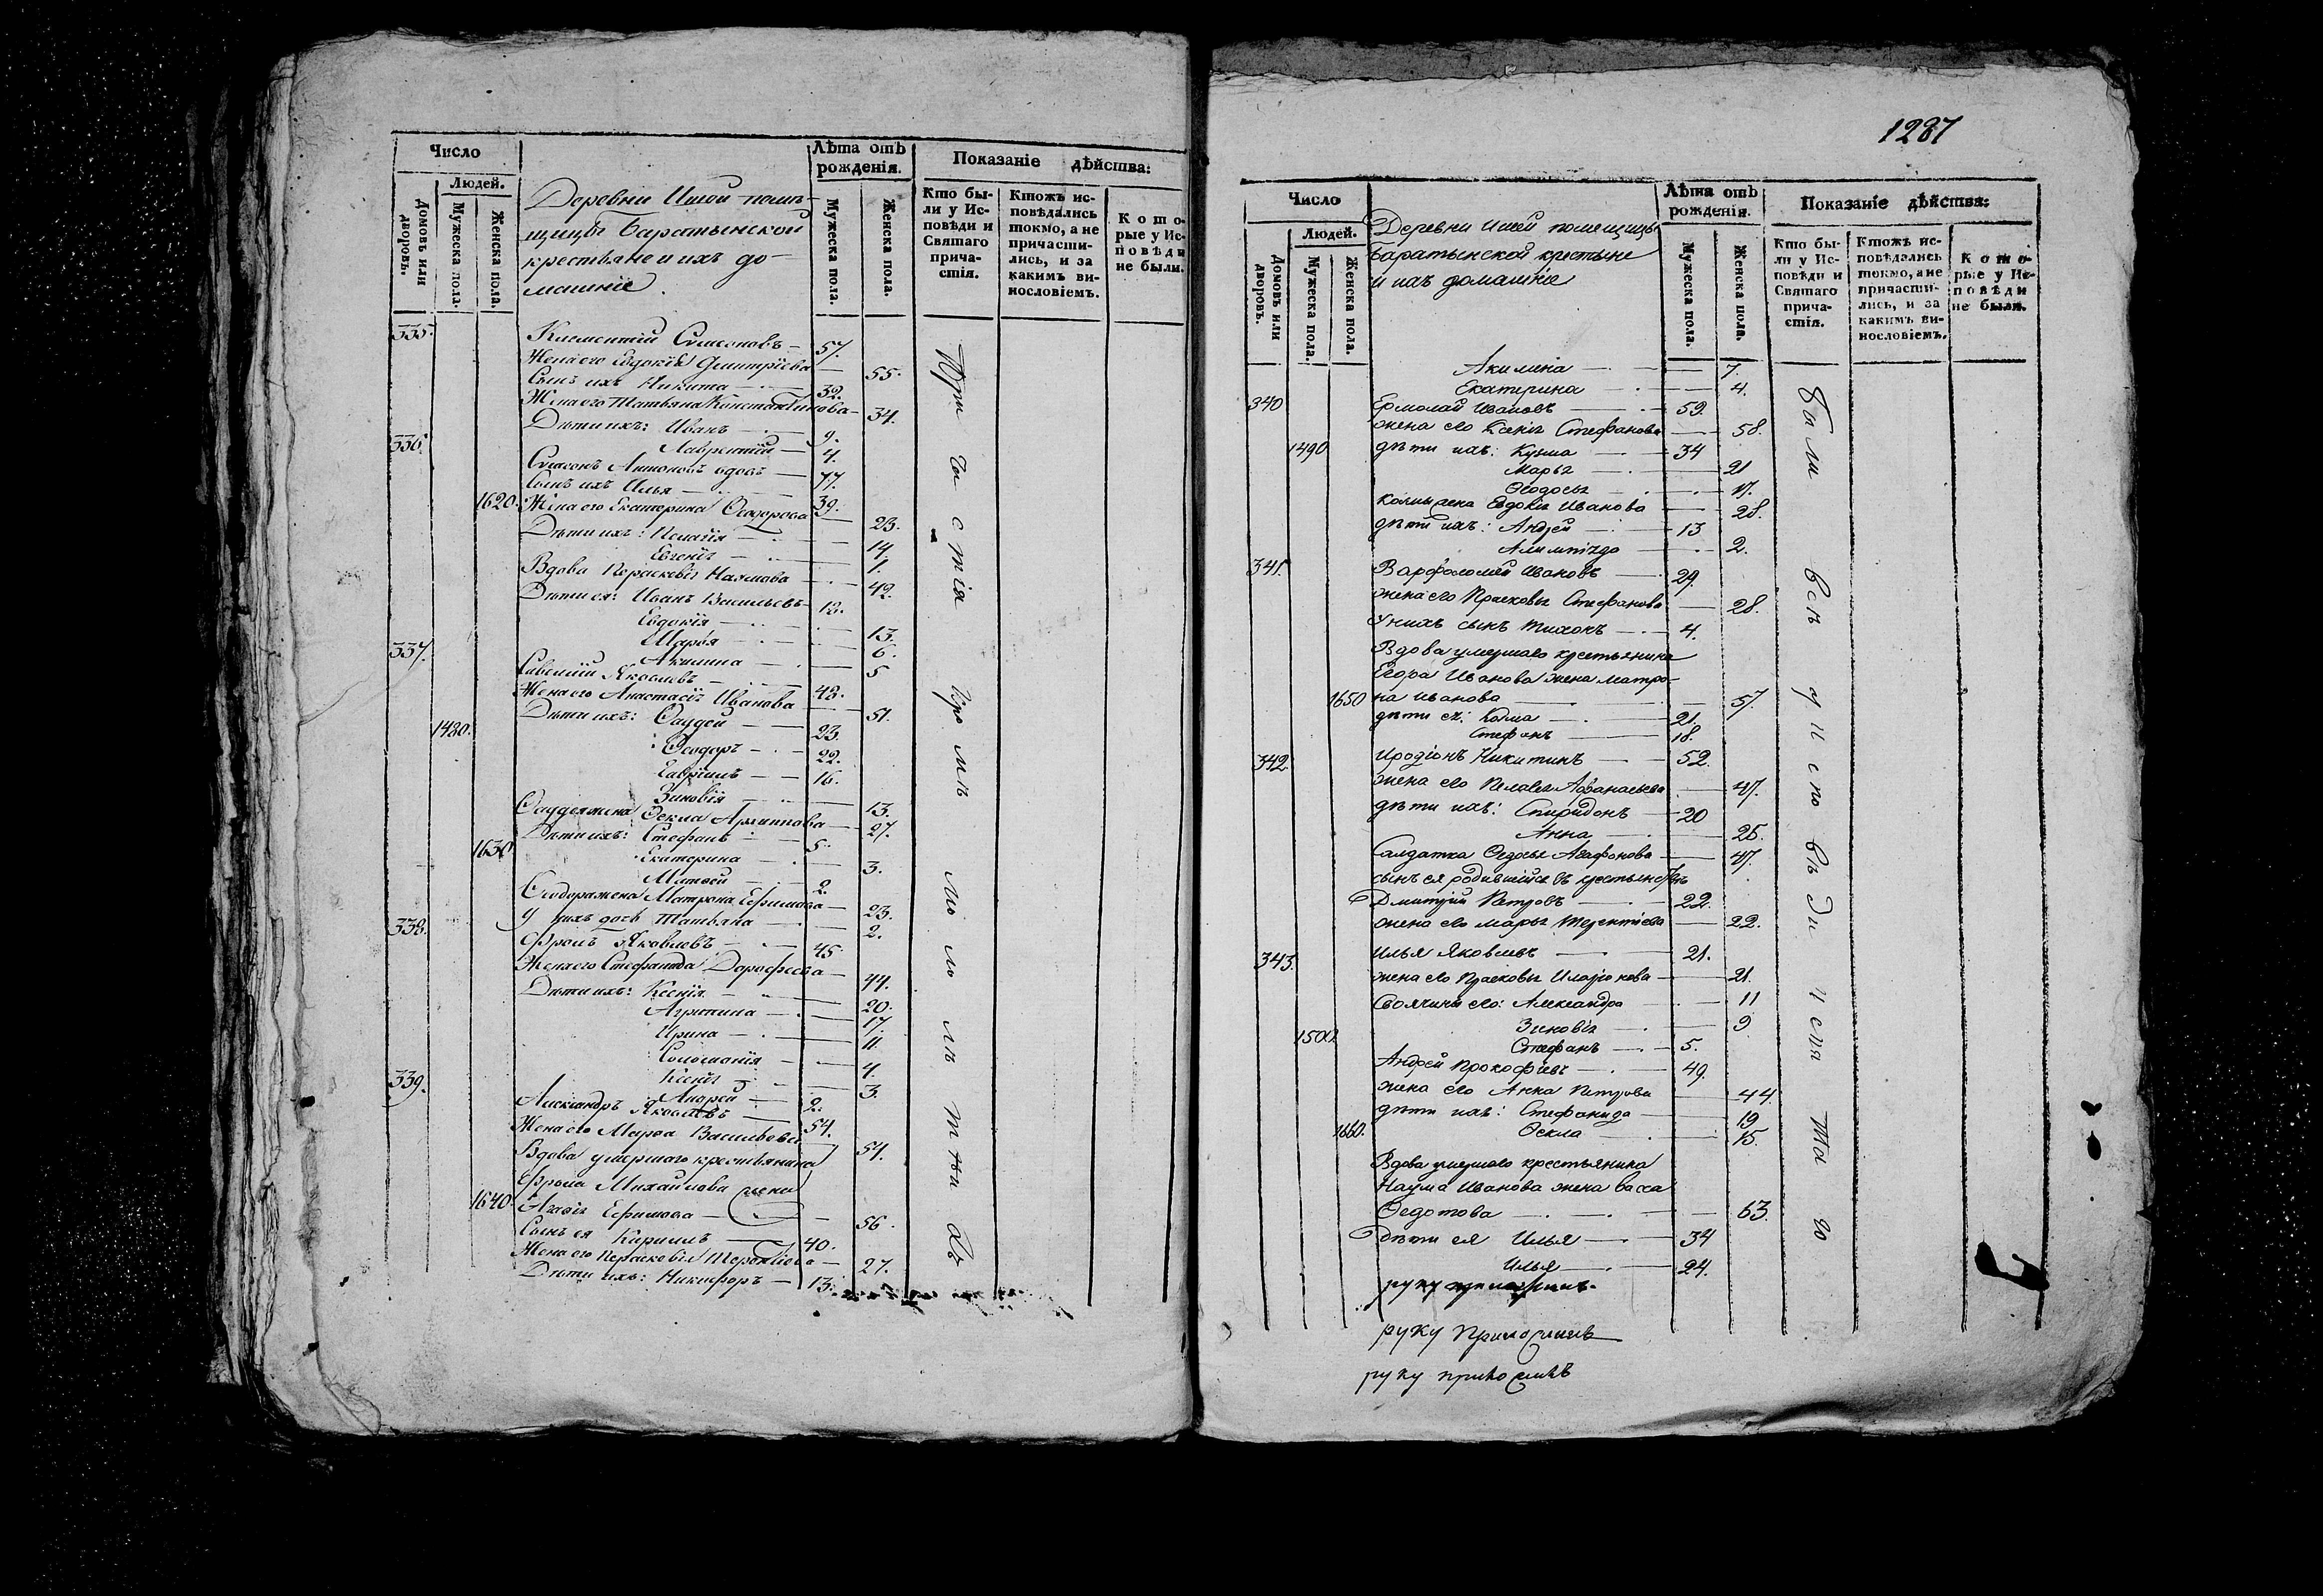 Число
Людей.
Домовъ или дворовъ.
Мужеска пола.
Женска пола.
Деревни Ишой помѣ-
щицы Баратынской
крестьяне и ихъ до-
машніе
Лѣта отъ рожденія.
Мужеска пола.
Женска пола.
Показаніе дѣйства:
Кто бы-
ли у Ис-
повѣди и
Святаго
прича-
стія.
Ктожъ ис-
повѣдались
токмо, а не
причасти-
лись, и за
какимъ ви-
нословіемъ.
Кото-
рые у Ис-
повѣди
не были.
335. Климентій Симеоновъ — 57.
Жена его Евдокія Дмитріева — 55.
Сынъ ихъ Никита — 32.
Жена его Татьяна Константинова — 34.
Дѣти ихъ: Иванъ — 9.
Лаврентій — 4.
336. Симеонъ Антоновъ вдовъ — 77.
Сынъ ихъ Илья — 39.
1620. Жена его Екатерина Ѳедорова — 23.
Дѣти ихъ: Пелагія — 14.
Евгенія — 1.
Вдова Пераскевія Наумова — 42.
Дѣти ея: Иванъ Васильевъ — 18.
Евдокія — 13.
Марья — 6.
Акилина — 5
337. Савелій Яковлевъ — 48.
Жена его Анастасія Иванова — 51.
1480. Дѣти ихъ: Ѳаддей — 23.
Ѳеодоръ — 22.
Гавріилъ — 16.
Зиновія — 13.
Ѳаддея жена Ѳекла Архиппова — 27.
Дѣти ихъ: Стефанъ — 5.
1630 Екатерина — 3.
Матвей — 2.
Ѳеодора жена Матрона Ефимова — 23.
У нихъ дочь Татьяна — 2.
338. Фролъ Яковлевъ — 45.
Жена его Стефанида Дорофеева — 44.
Дѣти ихъ: Ксенія — 20.
Агрипина — 17.
Ирина — 11.
Соломонія — 4.
Ксенія — 3.
Андрей — 2.
339. Александръ Яковлевъ — 54.
Жена его Марѳа Васильева — 54.
Вдова умершаго крестьянина
Фрола Михайлова жена
1640. Агафія Ефимова — 56.
Сынъ ея Кириллъ — 40.
Жена его Пераскевія Терентіева — 27.
Дѣти ихъ: Никифоръ — 13.
1287
Число
Людей.
Домовъ или дворовъ.
Мужеска пола.
Женска пола.
Деревни Ишей помещицы
Баратынской крестьяне
и ихъ домашніе
Лѣта отъ рожденія.
Мужеска пола.
Женска пола.
Показаніе дѣйства:
Кто бы-
ли у Ис-
повѣди и
Святаго
прича-
стія.
Ктожъ ис-
повѣдались
токмо, а не
причасти-
лись, и за
какимъ ви-
нословіемъ.
Кото-
рые у Ис-
повѣди
не были.
Акилина — 7.
Екатерина — 4.
340 Ермолай Ивановъ — 59.
жена его Ксенія Стефанова — 58.
1490 дѣти ихъ: Кузма — 34
Марья — 21
Ѳеодосья — 17.
Козмы жена Евдокія Иванова — 28.
дѣти ихъ: Андрей — 13
Алимпіада — 2.
341. Варфоломей Ивановъ — 29.
жена его Прасковья Стефанова — 28.
У нихъ сынъ Тихонъ — 4.
Вдова умершаго крестьянина
Егора Иванова жена Матро-
1650 на Иванова — 57.
дѣти ея: Козма — 21.
Стефанъ — 18.
342. Иродіонъ Никитинъ — 52.
жена его Пелагея Афанасьева — 47.
дѣти ихъ: Спиридонъ — 20
Анна — 25.
Салдатка Ѳедосья Агафонова — 47.
сынъ ея родившійся въ крестьянствѣ
Дмитрій Петровъ — 22.
жена его Марья Терентіева — 22.
343. Илья Яковлевъ — 21.
жена его Прасковья Иларіонова — 21.
Своячини его: Александра — 11
Зиновія — 9
1500 Стефанъ — 5.
Андрей Прокофіевъ — 49.
жена его Анна Петрова — 44.
дѣти ихъ: Стефанида — 19
1660. Ѳекла — 15.
Вдова умершаго крестьянина
Наума Иванова жена Васса
Ѳедотова — 63.
дѣти ея Илья — 34
Илья — 24.
Были всѣ у исповѣди
руку приложилъ
руку приложилъ
руку приложилъ